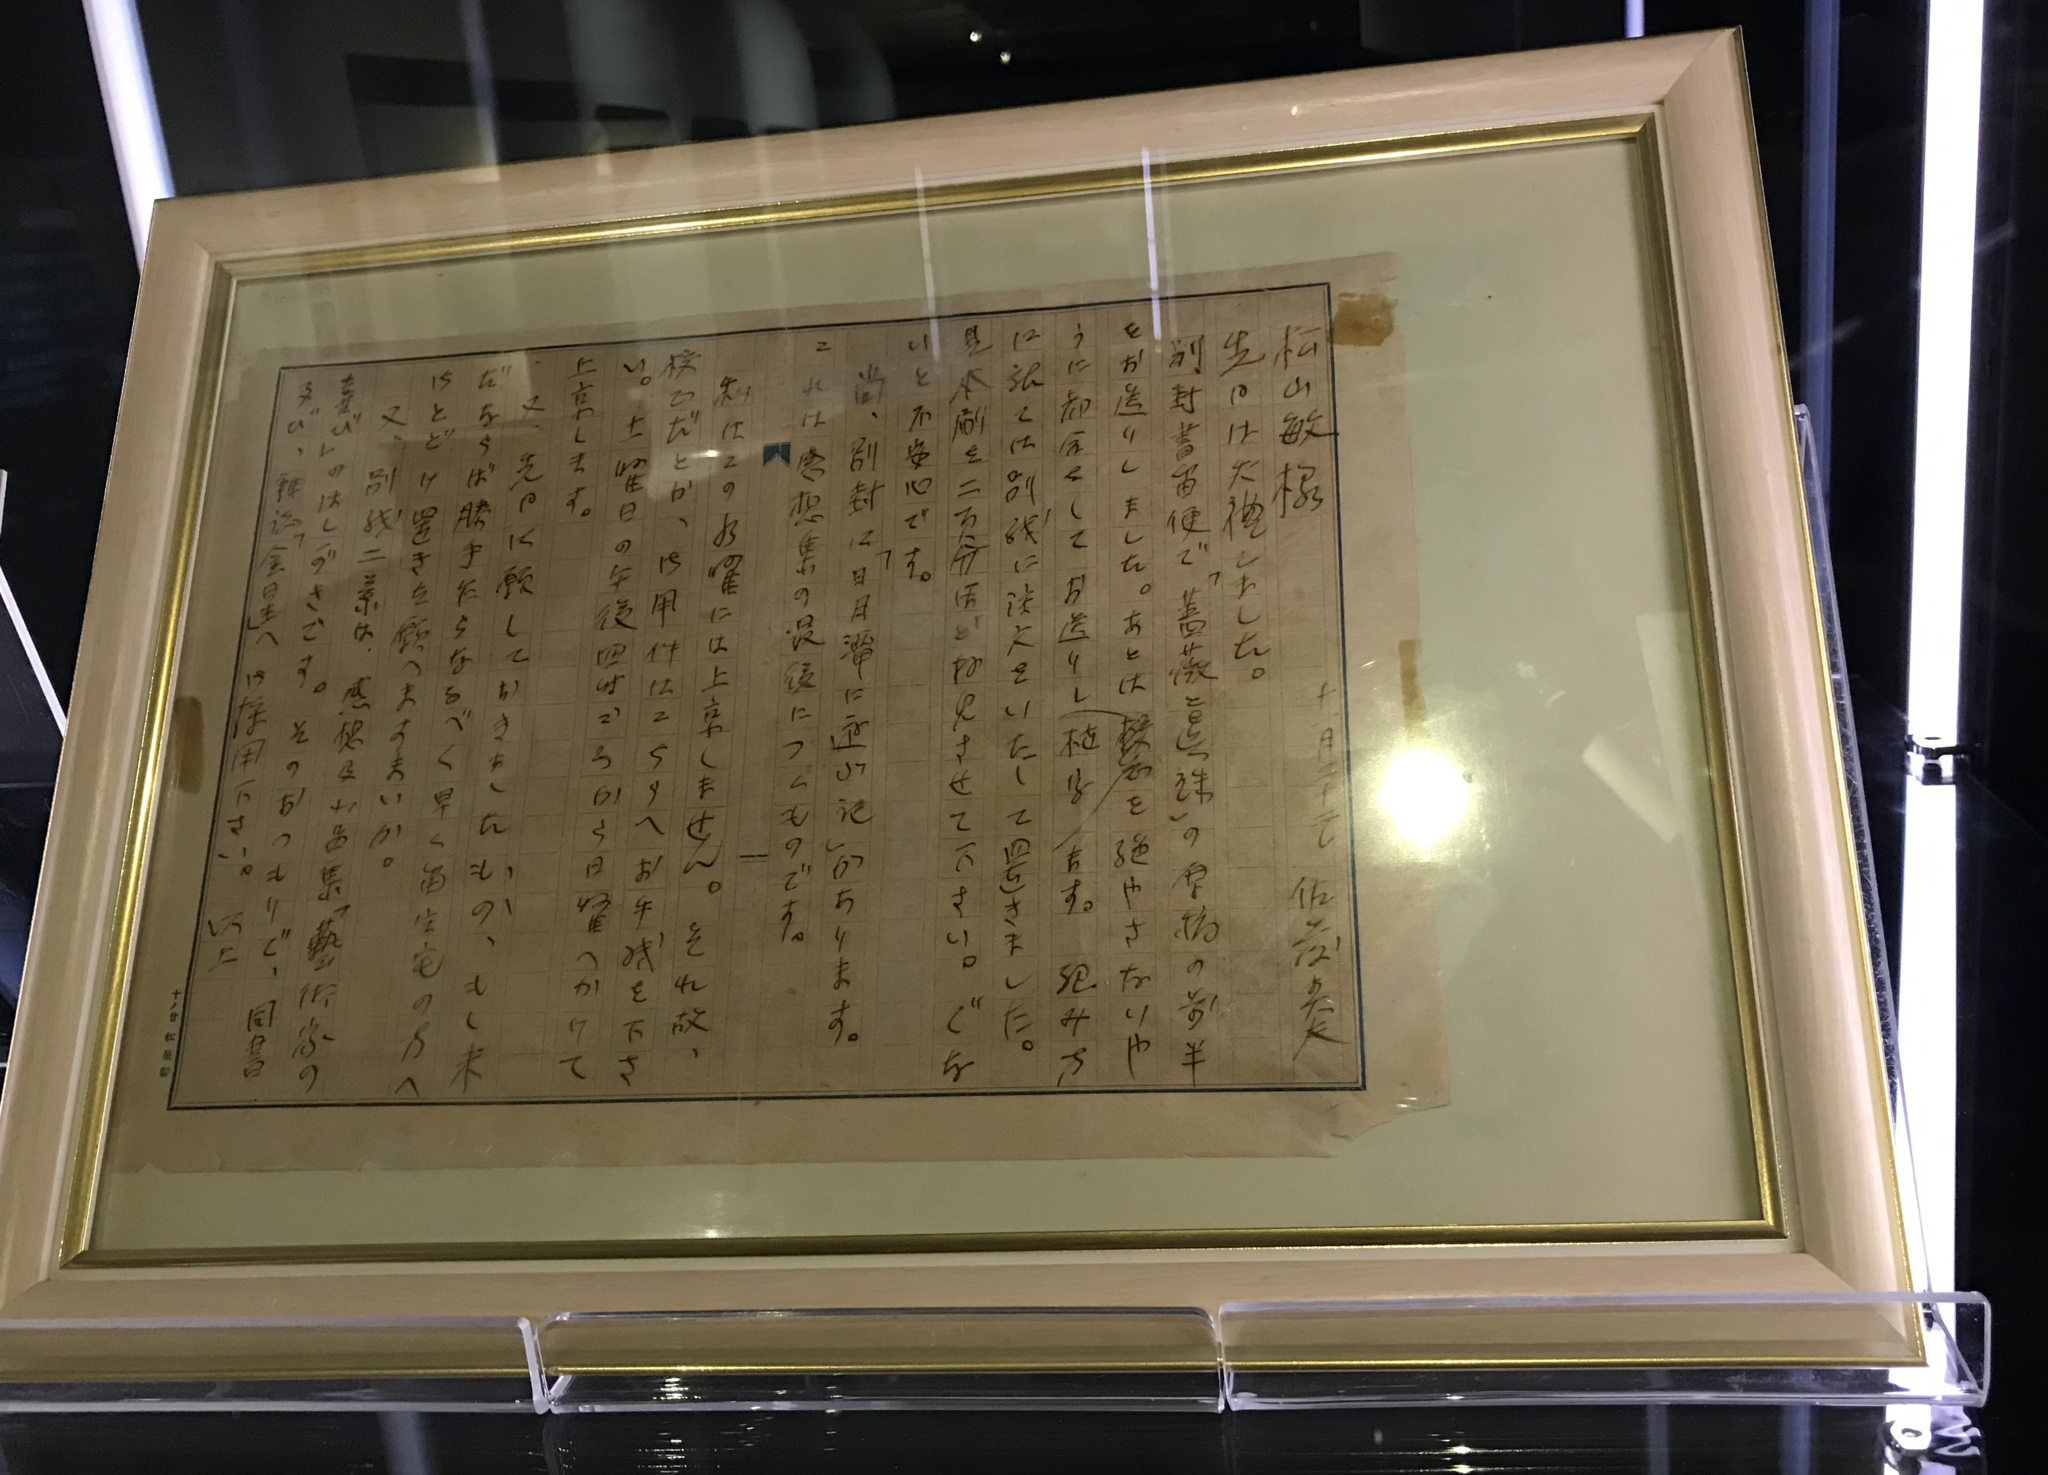 松山敏様
十月二十九 佐藤春夫
先日は失禮しました。
別封書留便で「薔薇と真珠」の原稿の前半
をお送りしました。あとは 絶やさないや
うに してお送りし ます。組み方
に就ては別紙に注文をいたして置きました。
見本刷を二頁分ほどお見させて下さい。でな
いと不安心です。
尚、別封に「日月潭に遊ぶ記」があります。
これは感想集の最後につくものです。
私はこの水曜には上京しません。それ故、
校正だとか、御用件はこちらへお手紙を下さ
い。土曜日の午後四時ごろから日曜へかけて
上京します。
又、先日に願しておきましたもの、もし未
だならば勝手たらなるべく早く留守宅の方へ
御とどけ置きを願へますまいか。
又、別紙二葉は、感想及小品集「藝術家の
喜び」のはしがきです。そのおつもりで、同書
及び、雜誌「金星」へ御採用下さい。 以上